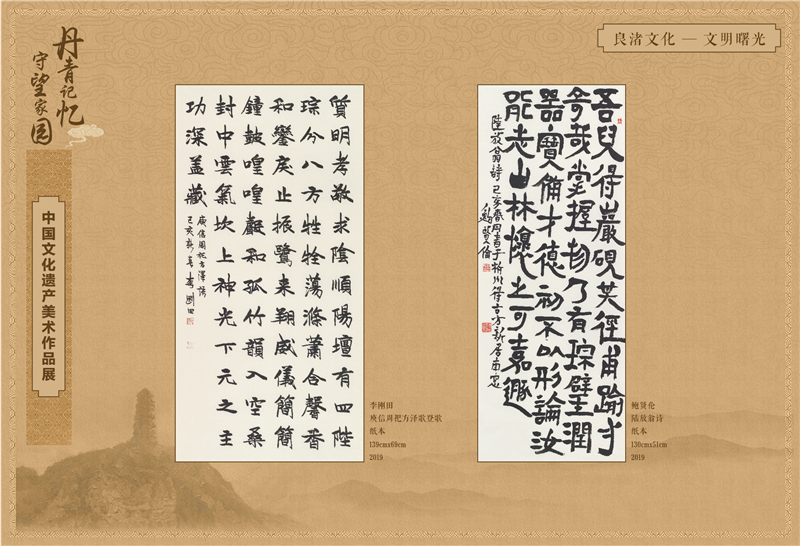 丹青记忆
守望家园
中国文化遗产美术作品展
良渚文化 — 文明曙光
質明孝敬求陰順陽壇有四陛
琮分八方牲牷蕩滌蕭合馨香
和鑾戾止振鷺来翔威儀簡簡
鐘鼓喤喤聲和孤竹韻入空桑
封中雲氣坎上神光下元之主
功深盖藏
庾信周祀方澤歌
己亥新春李剛田
李刚田
庾信周把方泽歌登歌
纸本
139cmx69cm
2019
吾兒得巖硯其徑甫踰寸
奇哉掌握物乃有琮璧潤
器寶備才德初不以形論汝
能老山林懷之可嘉遯
陸放翁詩己亥春月書于杭州得古方新居南窗
鮑賢倫
鲍贤伦
陆放翁诗
纸本
130cmx51cm
2019